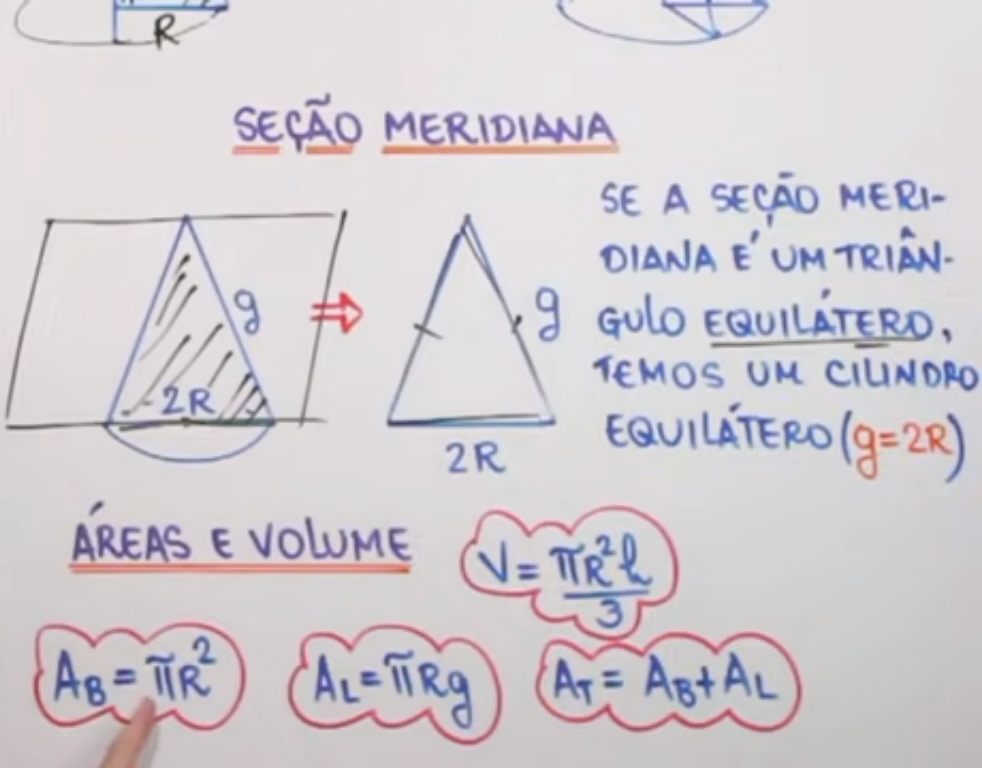 R
SEÇÃO MERIDIANA
g
2R
g
2R
SE A SEÇÃO MERI-
DIANA É UM TRIÂN-
GULO EQUILÁTERO,
TEMOS UM CILINDRO
EQUILÁTERO (g=2R)
ÁREAS E VOLUME
V = πR²h/3
A_B = πR²
A_L = πRg
A_T = A_B + A_L